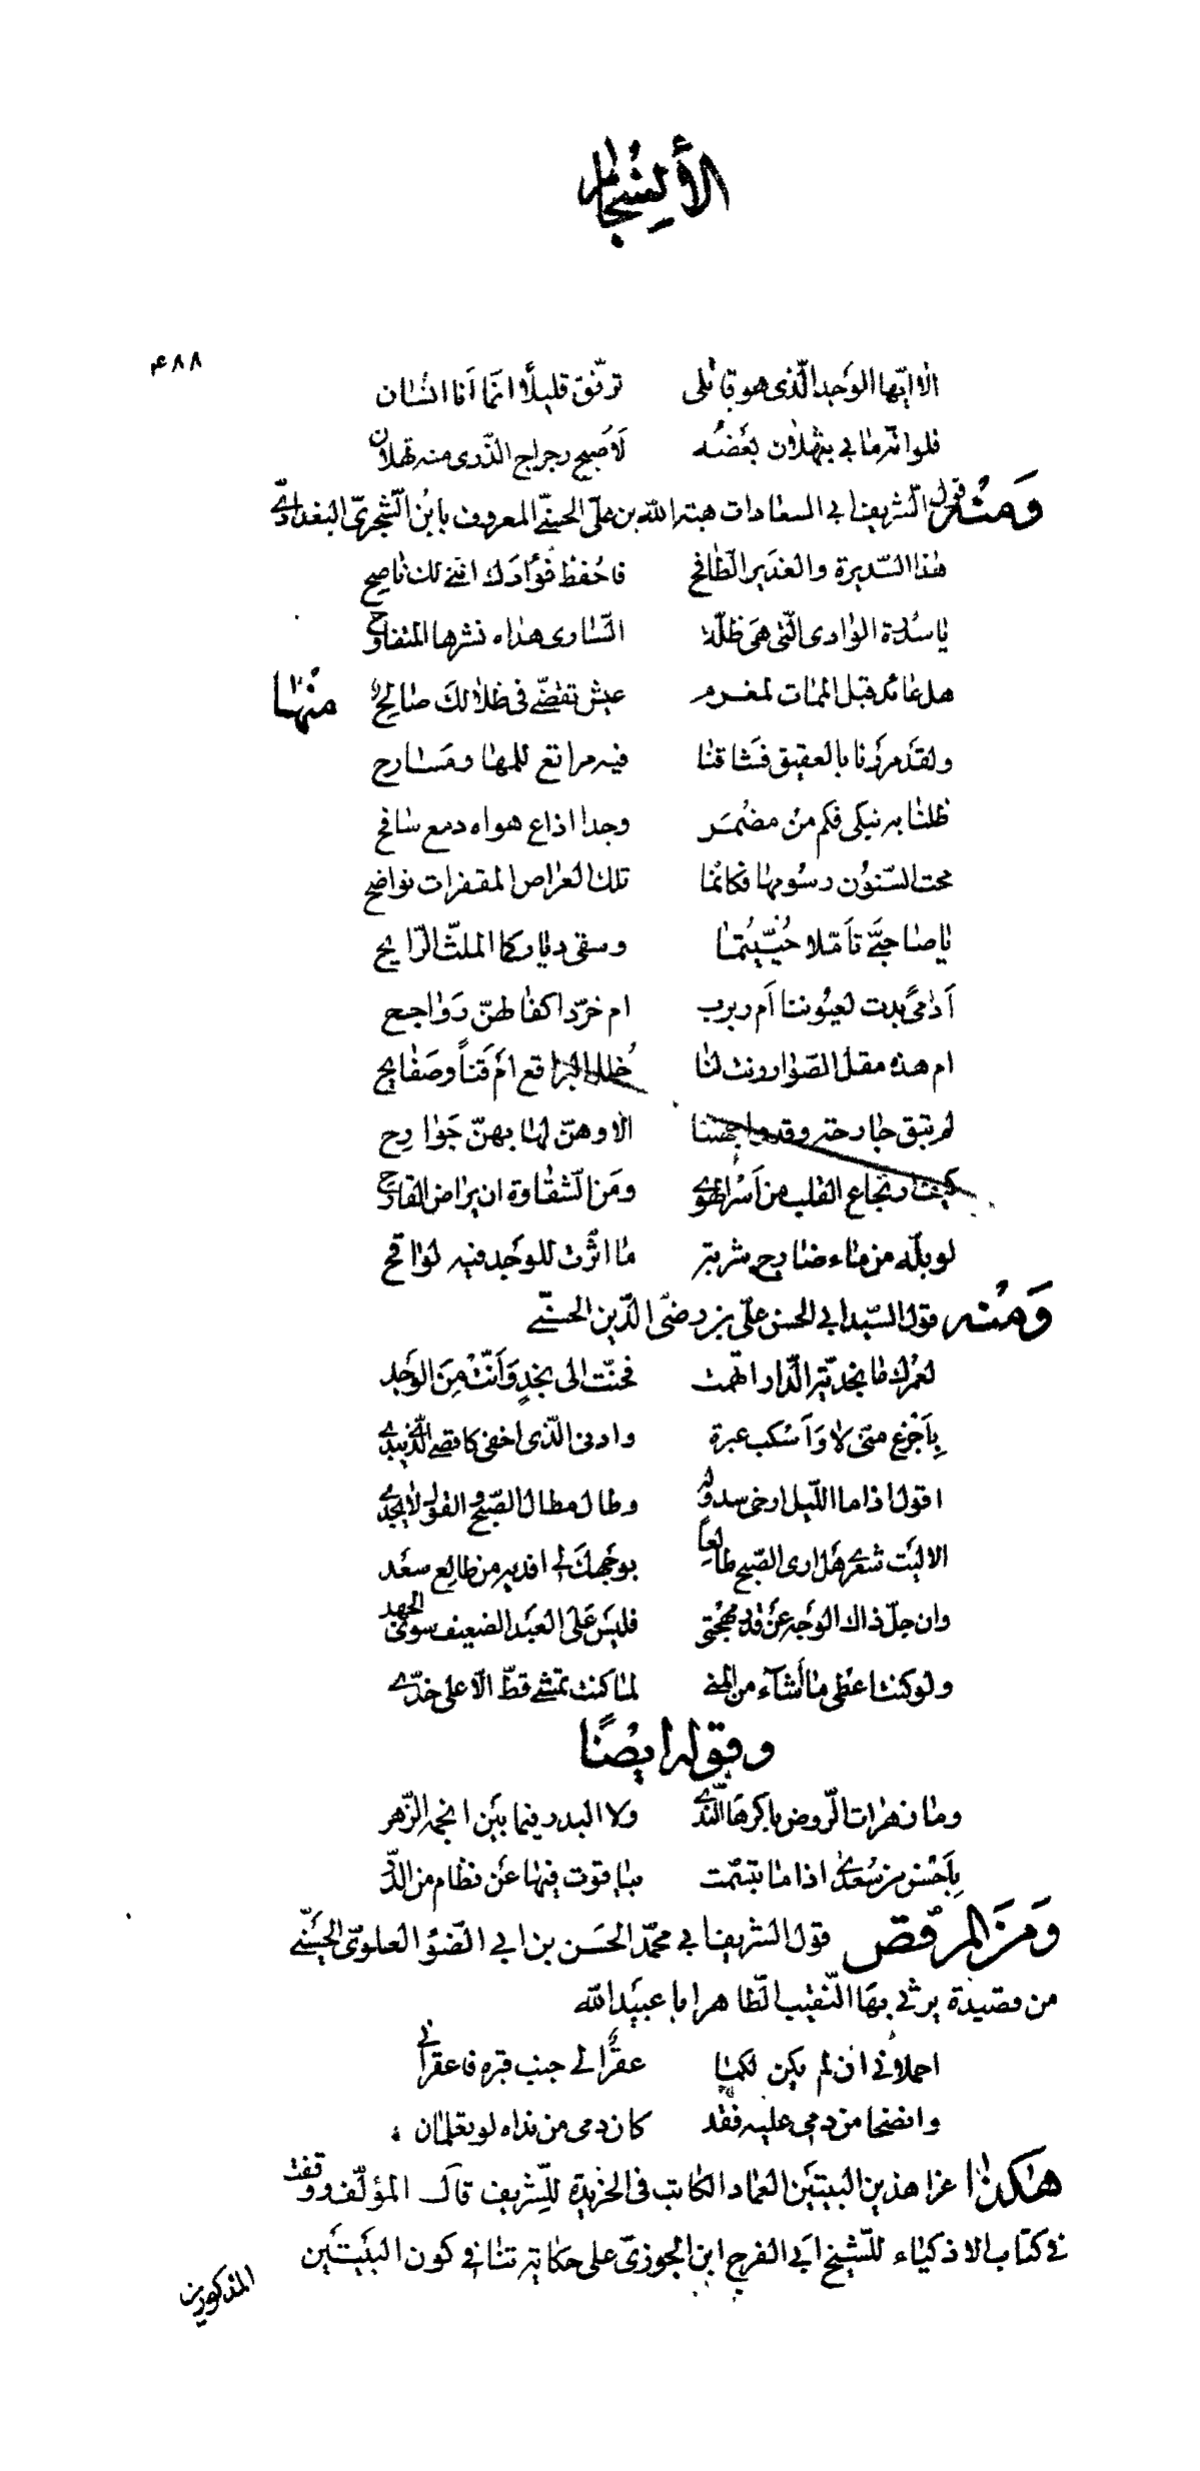 الأنسجام
۴۸۸
الا ايّها الوَجد الّذى هو قاتلى ترفّق قليلًا انّما اَنا انسان
فلو انّ ما بى بثهلان بعَضُه لَاَصبح رجراج الذّرى منه ثهلان
وَمنْه قول الشّريف ابى السعادات هبة الله بن علىّ الحسنىّ المعروف بابن الشّجرىّ البغدادىّ
هذا السّديرة والغدير الطّافح فاحفظ فؤادَك اننى لك ناصح
يا سدرة الوادى الّتى هىَ ظلّة السّارى هداه نشرها المتفاوح
هل عائد قبل الممات لمغرم عيش تقضّى فى ظلالكَ صالح منْها
ولقد مررنا بالعقيق فشاقنا فيه مراتع للمها ومَسارح
ظلنا به نبكى فكم منْ مضمر وجدا اذاع هواه دمع سافح
محت السّنون رسُومها فكانّما تلك العراص المقفرات نواضح
يا صاحبىَّ تاَمّلا حُيّيتما وسقى دياركما الملثّ الرّايح
اَدُمىً بدت لعيُوننا اَم ربرب ام خرّد اكفالهنّ رَواجح
ام هذه مقل الصّوار رنت لنا خلل البراقع اَم قَناً وصَفايح
لم تبق جارحة وقد واجهننا الا وهنّ لها بهنّ جوارح
كيف ارتجاع القلب من اَسْر الهوى ومَن الشقاوة ان يراض القارح
لو بلّه من ماء ضارج شربة ما اثّرت للوجد فيه لواقح
وَمنْه قول السّيد ابى الحسن علىّ بن رضىّ الدّين الحسنىّ
لعمرك ما نجديّة الدّار اتهمت فحنّت الى نجدٍ وَانّت منَ الوَجد
باَجزع منى لا وَاَسكب عبرة وادنى الّذى اخفى كاقصى الّذى يبدى
اقول اذا ما اللّيل ارخى سدوله وطال مطال الصّبح والقول لا يجدى
الا ليت شعرى هل ارى الصّبح طالعاً بوجهك لى افديه من طالع سعد
وان جلّ ذاك الوجه عَن فدى مهجتى فليس على العبد الضعيف سوى الجهد
ولو كنت اعطى ما اَشآء من المنى لما كنت تمشى قطّ الّا على خدّى
وقوله ايضًا
وما زهرات الرّوض باكرها النّدى ولا البدر فيما بين انجمه الزّهر
باَحسن من سُعدى اذا ما تبسّمت بياقوت فيها عن نظام من الدّر
وَمن المرقص قول الشريف ابى محمّد الحسَن بن ابى الضّوْ العلوىّ الحسَنىّ
من قصيدة يرثى بها النّقيب الطّاهر ابا عبيد الله
احملانى ان لم يكن لكما عقرٌ الى جنب قبره فاعقرانى
وانضحا من دمى عليه فقد كان دمى من نداه لو تعلمان
هكذا عزا هذين البيتين العماد الكاتب فى الخريدة للشّريف قال المؤلّف ووقفت
فى كتاب الاذكياء للشّيخ اَبى الفرج ابن الجوزىّ على حكاية تنافى كون البيتَين
المذكورين